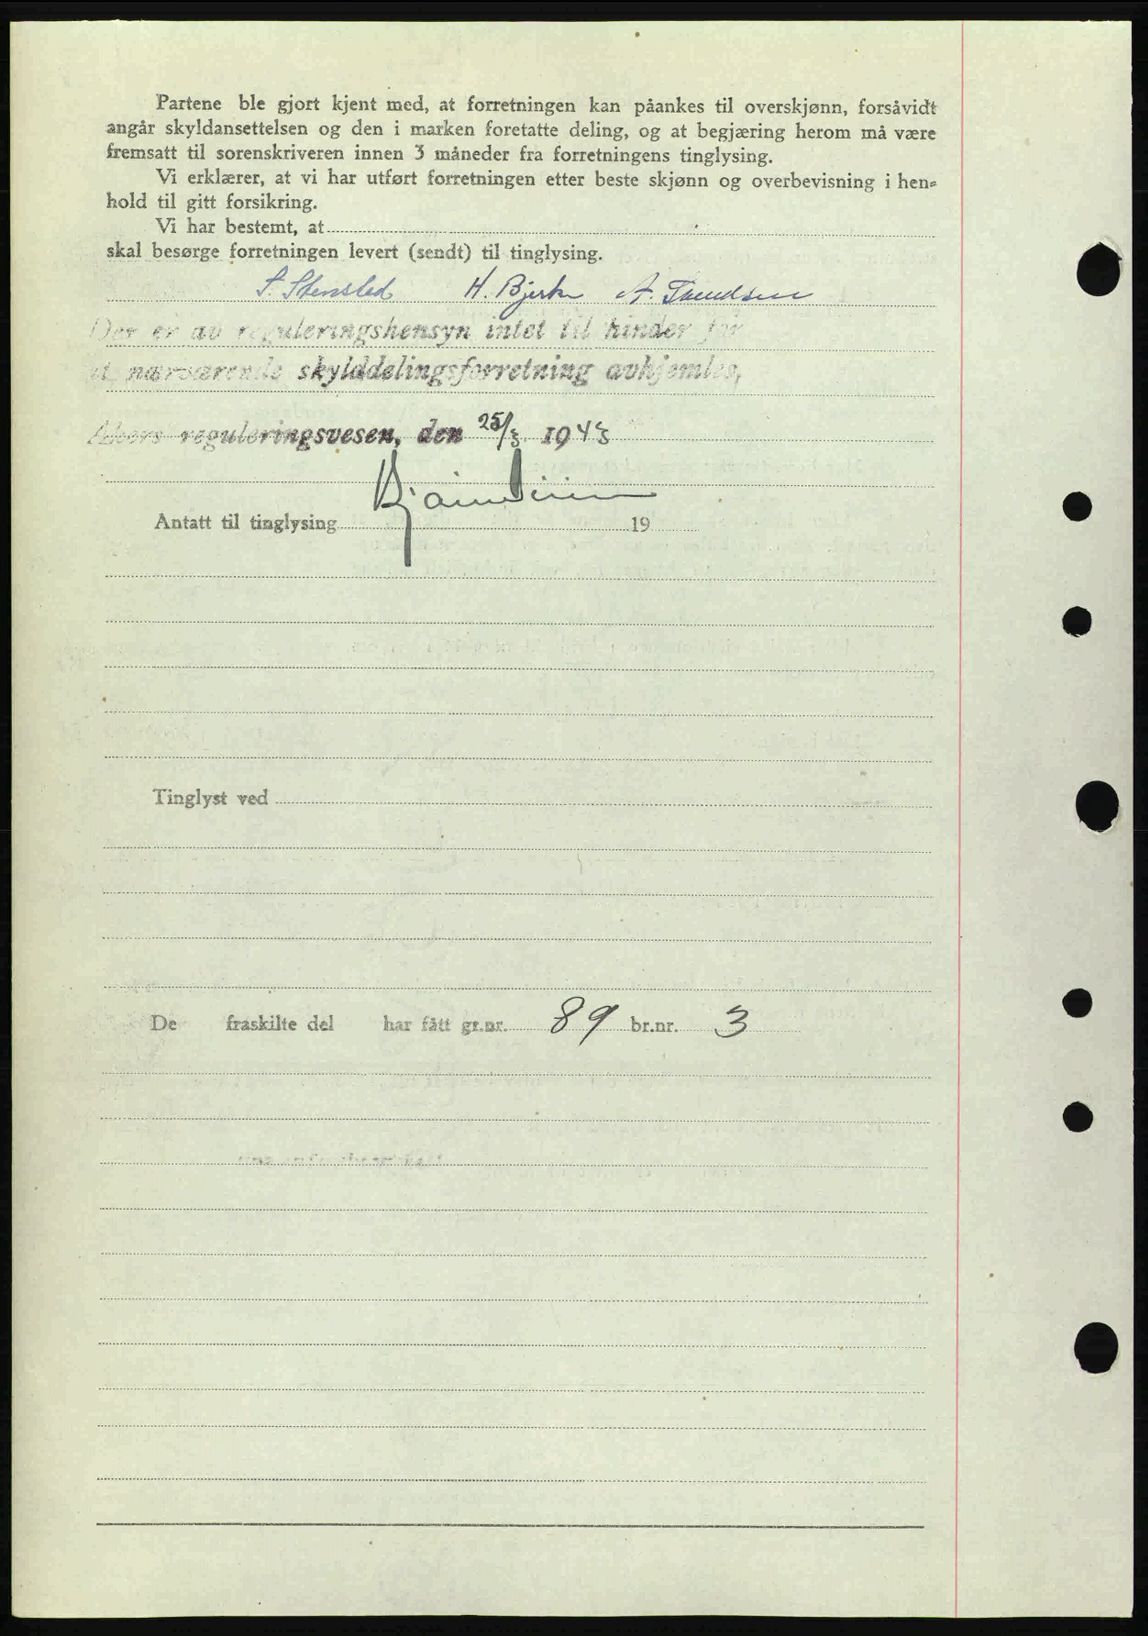 Partene ble gjort kjent med, at forretningen kan påankes til overskjønn, forsåvidt
angår skyldansettelsen og den i marken foretatte deling, og at begjæring herom må være
fremsatt til sorenskriveren innen 3 måneder fra forretningens tinglysing.
Vi erklærer, at vi har utført forretningen etter beste skjønn og overbevisning i hen=
hold til gitt forsikring.
Vi har bestemt, at
skal besørge forretningen levert (sendt) til tinglysing.
S. Stensled H. Bjerke A.
Der er av reguleringshensyn intet til hinder for
at nærværende skylddelingsforretning avhjemles,
reguleringsvesen, den 25/3 1943
Antatt til tinglysing 19
Tinglyst ved
De fraskilte del har fått gr.nr. 89 br.nr. 3